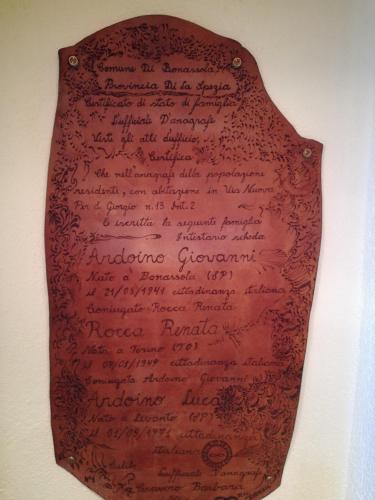 Comune Di Bonassola
Provincia Di La Spezia
Certificato di stato di famiglia
L'ufficiale D'anagrafe
Visti gli atti d'ufficio,
Certifica
Che nell'anagrafe della popolazione
residente, con abitazione in Via Nuova
Per S. Giorgio n. 13 Int. 2
è iscritta la seguente famiglia
Intestario scheda
Ardoino Giovanni
Nato a Bonassola (SP)
il 21/05/1941 cittadinanza italiana
Coniugato Rocca Renata
Rocca Renata
Nata a Torino (TO)
il 07/01/1949 cittadinanza italiana
Coniugata Ardoino Giovanni
Ardoino Luca
Nato a Levanto (SP)
il 01/05/1971 cittadinanza
italiana
L'ufficiale D'anagrafe
Barbara